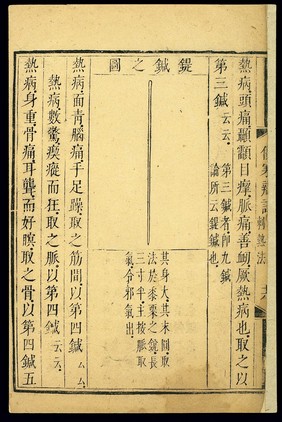 熱病頭痛顳顬目瘈脈痛善衄厥熱病也取之以
第三鍼云云。第三鍼者即九鍼
論所云鍉鍼也。
鍉鍼之圖
其身大。其末圓。取
法於黍粟之銳。長
三寸半。主按脈取
氣。令邪氣出。
熱病面青腦痛手足躁。取之筋間以第四鍼云云。
熱病數驚。瘈瘲而狂。取之脈以第四鍼云云。
熱病身重骨痛。耳聾而好瞑。取之骨以第四鍼五